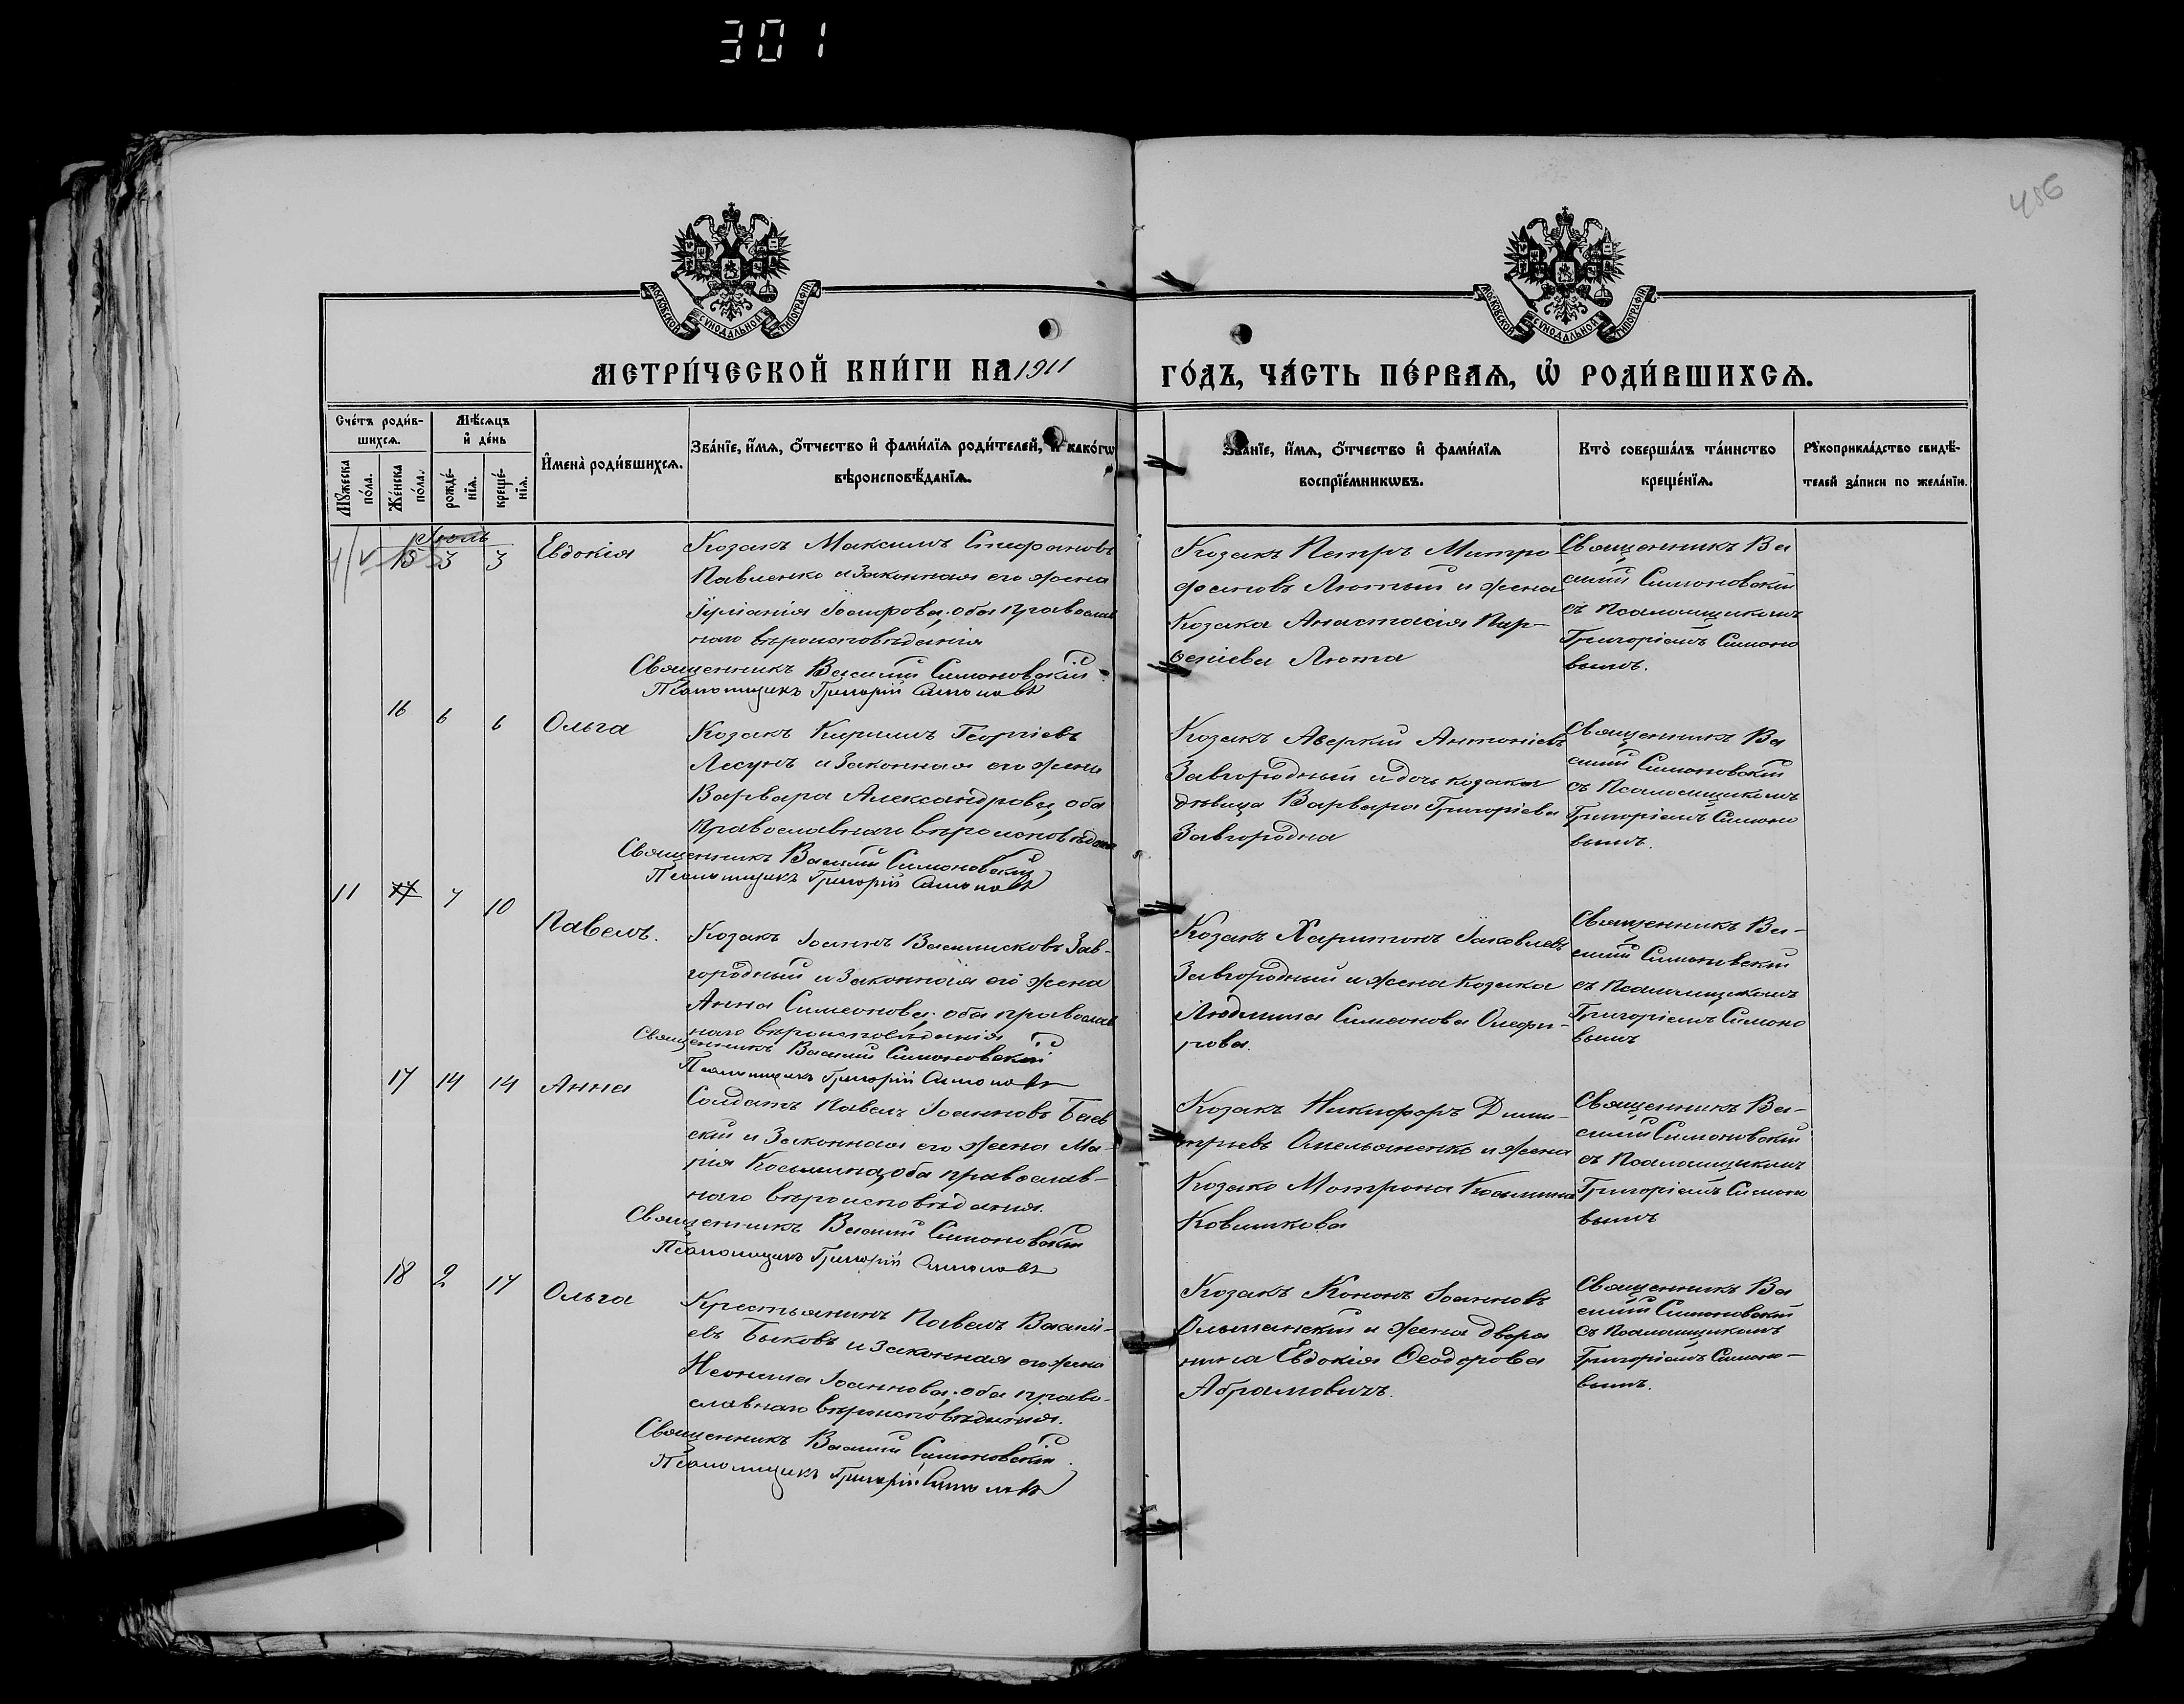 301
456
МОСКОВСКОЙ СѴНОДАЛЬНОЙ ТИПОГРАФІИ
МОСКОВСКОЙ СѴНОДАЛЬНОЙ ТИПОГРАФІИ
МЕТРИ́ЧЕСКОЙ КНИ́ГИ НА 1911 ГО́ДЪ, ЧА́СТЬ ПЕ́РВАѦ, Ѡ РОДИ́ВШИХСѦ.
Сче́тъ роди́в-
шихсѧ.
Мꙋ́жеска по́ла.
Же́нска по́ла.
Мѣ́сѧцъ и де́нь
рожде́-
нїѧ.
креще́-
нїѧ.
И҆мена̀ роди́вшихсѧ.
Зва́нїе, и҆́мѧ, ѻ҆́тчество и҆ фами́лїѧ роди́телей, и҆ како́гѡ
вѣроисповѣ́данїѧ.
Зва́нїе, и҆́мѧ, ѻ҆́тчество и҆ фами́лїѧ
воспрїе́мникѡвъ.
Кто̀ соверша́лъ та́инство
креще́нїѧ.
Рꙋкоприкла́дство свидѣ́-
телей за́писи по жела́нїю.
Іюль
15 3 3 Евдокія
Козакъ Максимъ Стефановъ
Павленко и законная его жена
Іуліанія Іосифова, оба православ
наго вѣроисповѣданія
Священникъ Василій Симоновскій
Псаломщикъ Григорій Симоновъ
Козакъ Петръ Митро-
фановъ Лютый и жена
Козака Анастасія Пар-
ѳеніева Люта
Священникъ Ва
силій Симоновскій
съ Псаломщикомъ
Григоріемъ Симоно
вымъ.
16 6 6 Ольга
Козакъ Кириллъ Георгіевъ
Лесунъ и законная его жена
Варвара Александрова, оба
православнаго вѣроисповѣданія
Священникъ Василій Симоновскій
Псаломщикъ Григорій Симоновъ
Козакъ Аверкій Антоніевъ
Завгородный и дочь козака
дѣвица Варвара Григоріева
Завгородна
Священникъ Ва
силій Симоновскій
съ Псаломщикомъ
Григоріемъ Симоно
вымъ.
11 17 7 10 Павелъ.
Козакъ Іоаннъ Василисковъ Зав-
городный и законная его жена
Анна Симеонова, оба православ
наго вѣроисповѣданія
Священникъ Василій Симоновскій
Псаломщикъ Григорій Симоновъ
Козакъ Харитонъ Іаковлевъ
Завгородный и жена козака
Людмила Симеонова Олефи-
рова.
Священникъ Ва-
силій Симоновскій
съ Псаломщикомъ
Григоріемъ Симоно
вымъ
17 14 14 Анна
Солдатъ Павелъ Іоанновъ Баев
скій и законная его жена Ма-
рія Косьмина, оба православ-
наго вѣроисповѣданія.
Священникъ Василій Симоновскій
Псаломщикъ Григорій Симоновъ
Козакъ Никифоръ Дими-
тріевъ Омельяненко и жена
Козака Матрона Косьмина
Ковшикова
Священникъ Ва-
силій Симоновскій
съ Псаломщикомъ
Григоріемъ Симоно
вымъ
18 2 17 Ольга
Крестьянинъ Павелъ Василі-
евъ Быковъ и законная его жена
Неонила Іоаннова, оба право-
славнаго вѣроисповѣданія.
Священникъ Василій Симоновскій
Псаломщикъ Григорій Симоновъ
Козакъ Кононъ Іоанновъ
Ольшанскій и жена дворя
нина Евдокія Ѳеодорова
Абрамовичъ.
Священникъ Ва
силій Симоновскій
съ Псаломщикомъ
Григоріемъ Симоно-
вымъ.